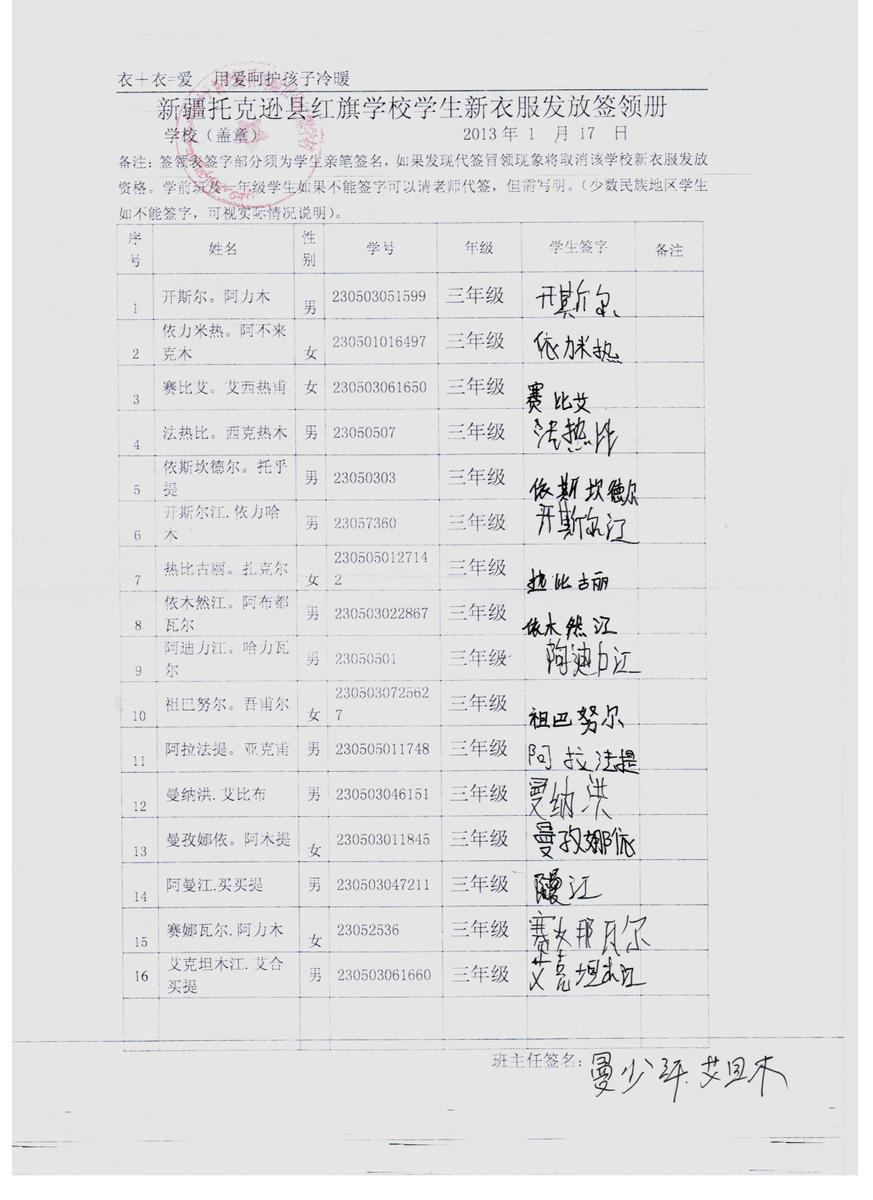 衣+衣=爱 用爱呵护孩子冷暖
新疆托克逊县红旗学校学生新衣服发放签领册
学校（盖章） 2013 年 1 月 17 日
备注：签领表签字部分须为学生亲笔签名，如果发现代签冒领现象将取消该学校新衣服发放
资格。学前班及一年级学生如果不能签字可以请老师代签，但需写明。（少数民族地区学生
如不能签字，可视实际情况说明）。
序号 姓名 性别 学号 年级 学生签字 备注
1 开斯尔。阿力木 男 230503051599 三年级 开斯尔
2 依力米热。阿不来克木 女 230501016497 三年级 依力米热
3 赛比艾。艾西热甫 女 230503061650 三年级 赛比艾
4 法热比。西克热木 男 23050507 三年级 法热比
5 依斯坎德尔。托乎提 男 23050303 三年级 依斯坎德尔
6 开斯尔江.依力哈木 男 23057360 三年级 开斯尔江
7 热比古丽。扎克尔 女 2305050127142 三年级 热比古丽
8 依木然江。阿布都瓦尔 男 230503022867 三年级 依木然江
9 阿迪力江。哈力瓦尔 男 23050501 三年级 阿迪力江
10 祖巴努尔。吾甫尔 女 2305030725627 三年级 祖巴努尔
11 阿拉法提。亚克甫 男 230505011748 三年级 阿拉法提
12 曼纳洪.艾比布 男 230503046151 三年级 曼纳洪
13 曼孜娜依。阿木提 女 230503011845 三年级 曼孜娜依
14 阿曼江.买买提 男 230503047211 三年级 阿曼江
15 赛娜瓦尔.阿力木 女 23052536 三年级 赛娜瓦尔
16 艾克坦木江.艾合买提 男 230503061660 三年级 艾克坦木江
班主任签名：